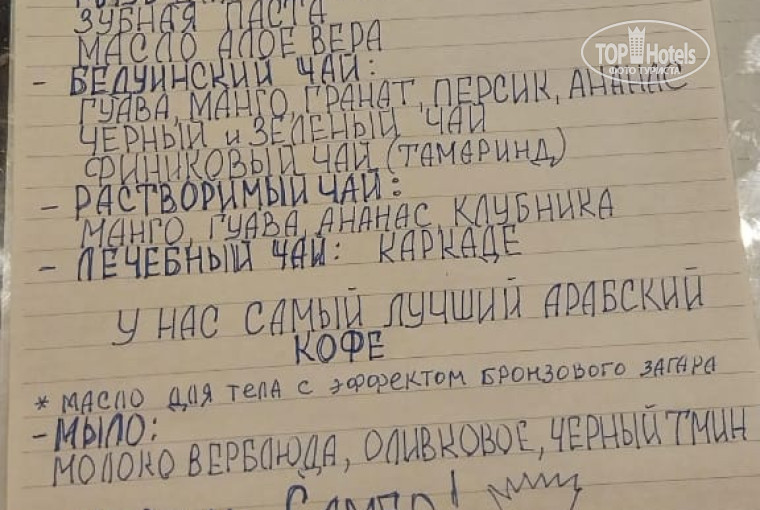 ЗУБНАЯ ПАСТА
МАСЛО АЛОЕ ВЕРА
- БЕДУИНСКИЙ ЧАЙ:
ГУАВА, МАНГО, ГРАНАТ, ПЕРСИК, АНАНАС
ЧЕРНЫЙ и ЗЕЛЕНЫЙ ЧАЙ
ФИНИКОВЫЙ ЧАЙ (ТАМАРИНД)
- РАСТВОРИМЫЙ ЧАЙ:
МАНГО, ГУАВА, АНАНАС, КЛУБНИКА
- ЛЕЧЕБНЫЙ ЧАЙ: КАРКАДЕ
У НАС САМЫЙ ЛУЧШИЙ АРАБСКИЙ
КОФЕ
* МАСЛО ДЛЯ ТЕЛА С ЭФФЕКТОМ БРОНЗОВОГО ЗАГАРА
- МЫЛО:
МОЛОКО ВЕРБЛЮДА, ОЛИВКОВОЕ, ЧЕРНЫЙ ТМИН
TOP Hotels
ФОТО ТУРИСТА